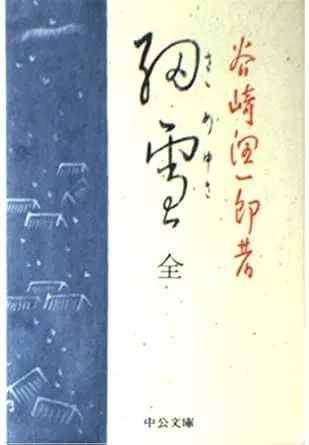 谷崎潤一郎著
細雪
ささめゆき
全
中公文庫